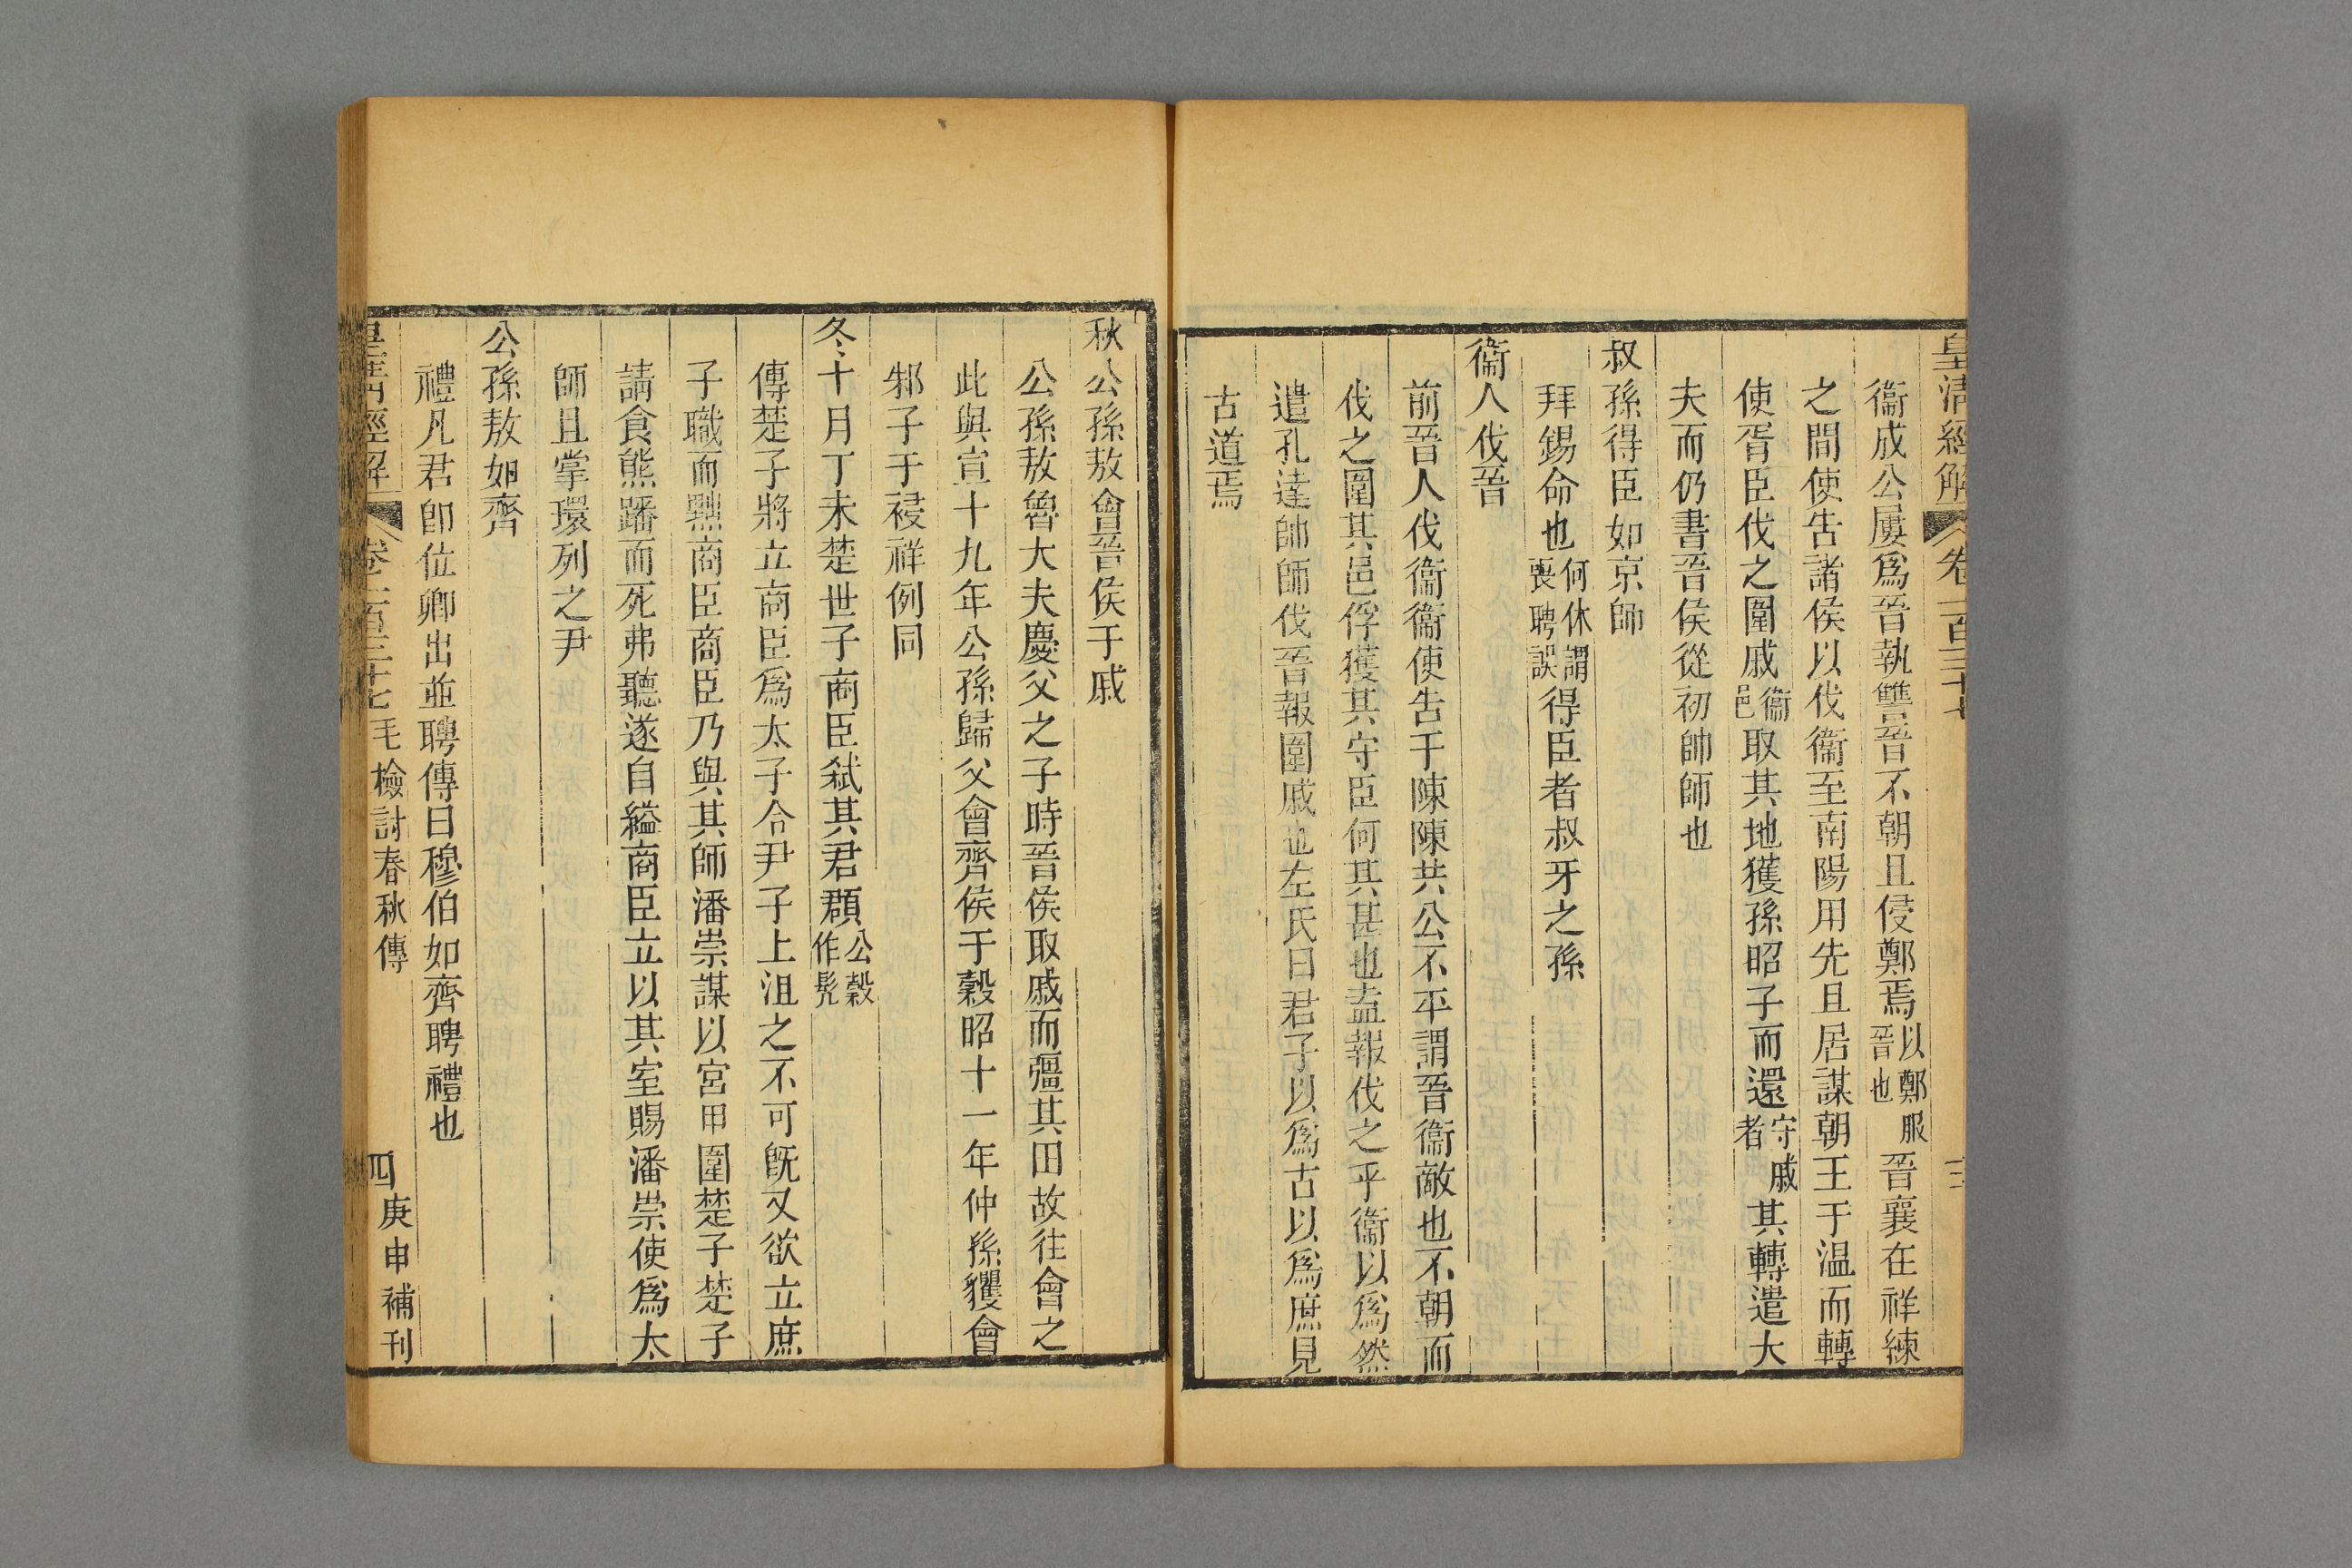 皇清經解 卷一百三十七
衞成公屢爲晉執讐晉不朝且侵鄭焉以鄭服晉也晉襄在祥練
之間使告諸侯以伐衞至南陽用先且居謀朝王于温而轉
使胥臣伐之圍戚衞邑取其地獲孫昭子而還守戚者其轉遣大
夫而仍書晉侯從初帥師也
叔孫得臣如京師
拜錫命也何休謂喪聘誤得臣者叔牙之孫
衞人伐晉
前晉人伐衞衞使告于陳陳共公不平謂晉衞敵也不朝而
伐之圍其邑俘獲其守臣何其甚也盍報伐之乎衞以爲然
遣孔達帥師伐晉報圍戚也左氏曰君子以爲古以爲庶見
古道焉
秋公孫敖會晉侯于戚
公孫敖魯大夫慶父之子時晉侯取戚而疆其田故往會之
此與宣十九年公孫歸父會齊侯于穀昭十一年仲孫貜會
邾子于祲祥例同
冬十月丁未楚世子商臣弑其君頵公穀作髡
傳楚子將立商臣爲太子令尹子上沮之不可旣又欲立庶
子職而黜商臣商臣乃與其師潘崇謀以宮甲圍楚子楚子
請食熊蹯而死弗聽遂自縊商臣立以其室賜潘崇使爲太
師且掌環列之尹
公孫敖如齊
禮凡君卽位卿出並聘傳曰穆伯如齊聘禮也
皇清經解 卷一百三十七 毛檢討春秋傳 四 庚申補刊